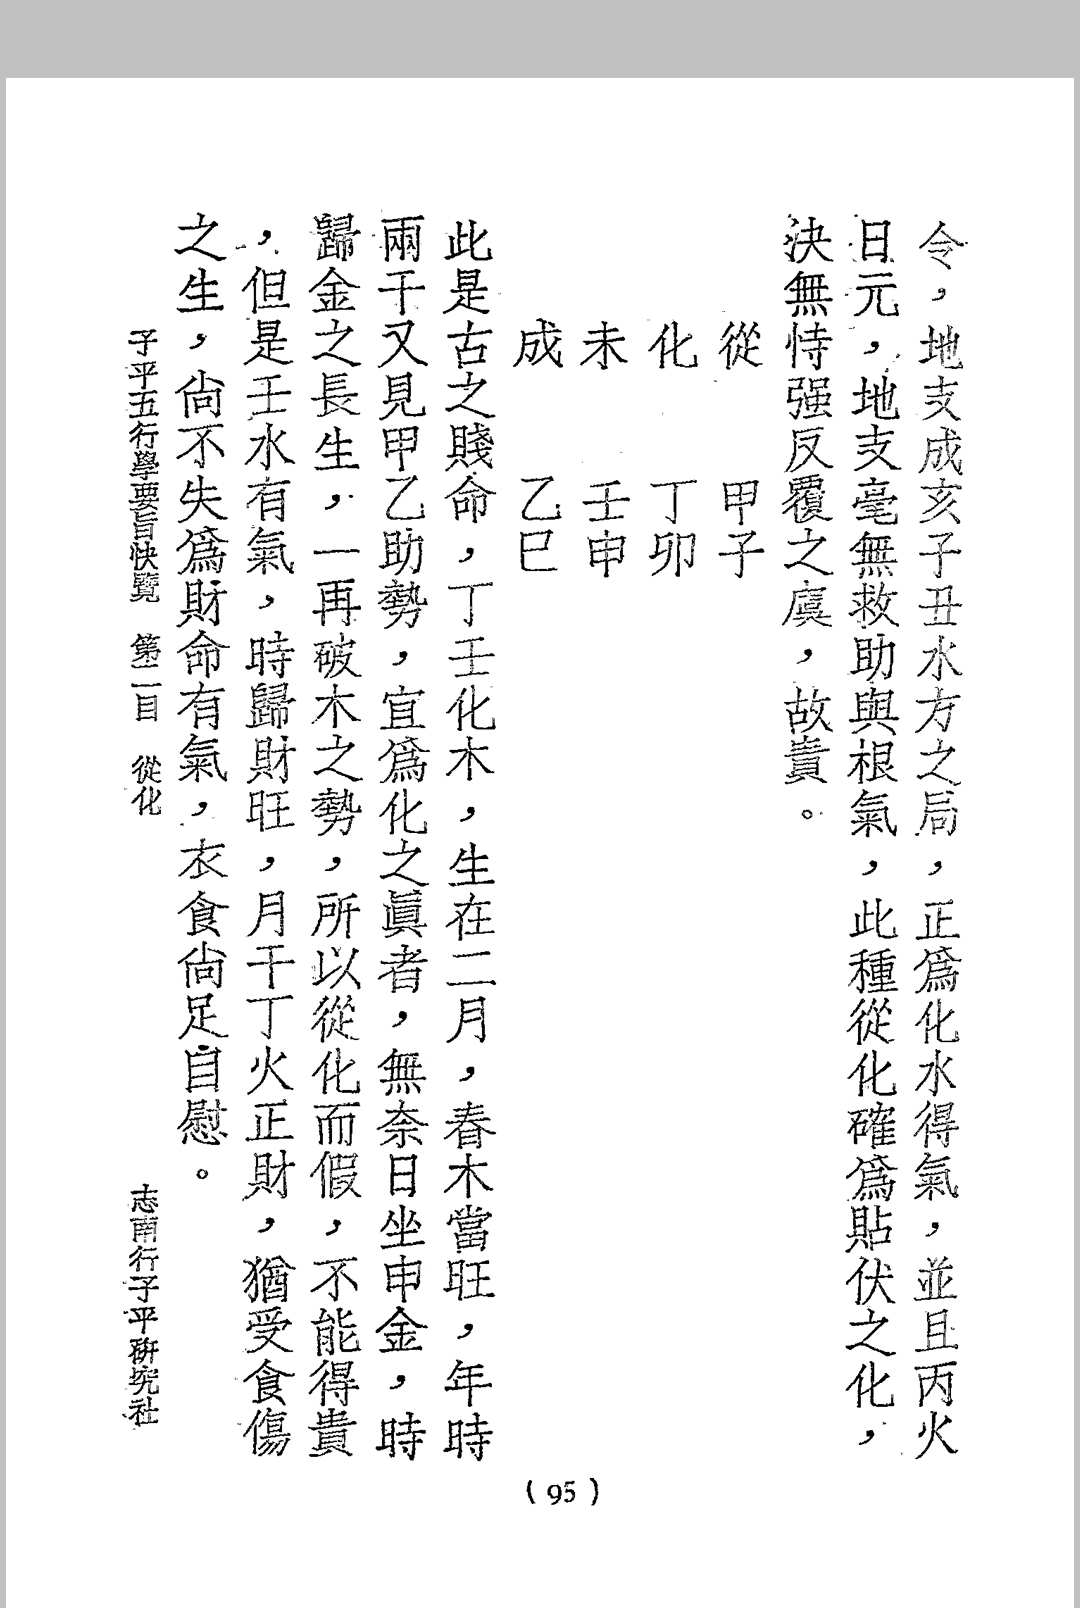 令，地支成亥子丑水方之局，正爲化水得氣，並且丙火
日元，地支毫無救助與根氣，此種從化確爲貼伏之化，
決無恃强反覆之虞，故貴。
從　甲子
化　丁卯
未　壬申
成　乙巳
此是古之賤命，丁壬化木，生在二月，春木當旺，年時
兩干又見甲乙助勢，宜爲化之眞者，無奈日坐申金，時
歸金之長生，一再破木之勢，所以從化而假，不能得貴
，但是壬水有氣，時歸財旺，月干丁火正財，猶受食傷
之生，尙不失爲財命有氣，衣食尙足自慰。
子平五行學要旨快覽　第二目　從化
志南行子平硏究社
(95)